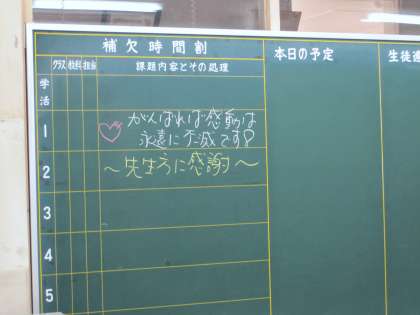 補欠時間割
本日の予定
生徒連
クラス 教科 担当 課題内容とその処理
学活
1
がんばれば感動は
永遠に不滅です?
2
〜先生方に感謝〜
3
4
5